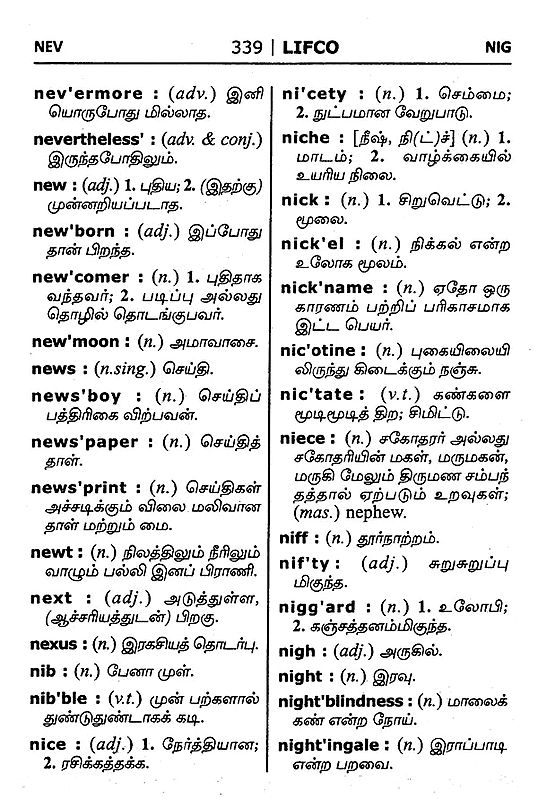 NEV 339 | LIFCO NIG
nev'ermore : (adv.) இனி
யொருபோது மில்லாத.
nevertheless' : (adv. & conj.)
இருந்தபோதிலும்.
new : (adj.) 1. புதிய; 2. (இதற்கு)
முன்னறியப்படாத.
new'born : (adj.) இப்போது
தான் பிறந்த.
new'comer : (n.) 1. புதிதாக
வந்தவர்; 2. படிப்பு அல்லது
தொழில் தொடங்குபவர்.
new'moon : (n.) அமாவாசை.
news : (n.sing.) செய்தி.
news'boy : (n.) செய்திப்
பத்திரிகை விற்பவன்.
news'paper : (n.) செய்தித்
தாள்.
news'print : (n.) செய்திகள்
அச்சடிக்கும் விலை மலிவான
தாள் மற்றும் மை.
newt : (n.) நிலத்திலும் நீரிலும்
வாழும் பல்லி இனப் பிராணி.
next : (adj.) அடுத்துள்ள,
(ஆச்சரியத்துடன்) பிறகு.
nexus : (n.) இரகசியத் தொடர்பு.
nib : (n.) பேனா முள்.
nib'ble : (v.t.) முன் பற்களால்
துண்டுதுண்டாகக் கடி.
nice : (adj.) 1. நேர்த்தியான;
2. ரசிக்கத்தக்க.
ni'cety : (n.) 1. செம்மை;
2. நுட்பமான வேறுபாடு.
niche : [நீஷ், நி(ட்)ச்] (n.) 1.
மாடம்; 2. வாழ்க்கையில்
உயரிய நிலை.
nick : (n.) 1. சிறுவெட்டு; 2.
மூலை.
nick'el : (n.) நிக்கல் என்ற
உலோக மூலம்.
nick'name : (n.) ஏதோ ஒரு
காரணம் பற்றிப் பரிகாசமாக
இட்ட பெயர்.
nic'otine : (n.) புகையிலையி
லிருந்து கிடைக்கும் நஞ்சு.
nic'tate : (v.t.) கண்களை
மூடிமூடித் திற; சிமிட்டு.
niece : (n.) சகோதரர் அல்லது
சகோதரியின் மகள், மருமகன்,
மருகி மேலும் திருமண சம்பந்
தத்தால் ஏற்படும் உறவுகள்;
(mas.) nephew.
niff : (n.) தூர்நாற்றம்.
nif'ty : (adj.) சுறுசுறுப்பு
மிகுந்த.
nigg'ard : (n.) 1. உலோபி;
2. கஞ்சத்தனம்மிகுந்த.
nigh : (adj.) அருகில்.
night : (n.) இரவு.
night'blindness : (n.) மாலைக்
கண் என்ற நோய்.
night'ingale : (n.) இராப்பாடி
என்ற பறவை.